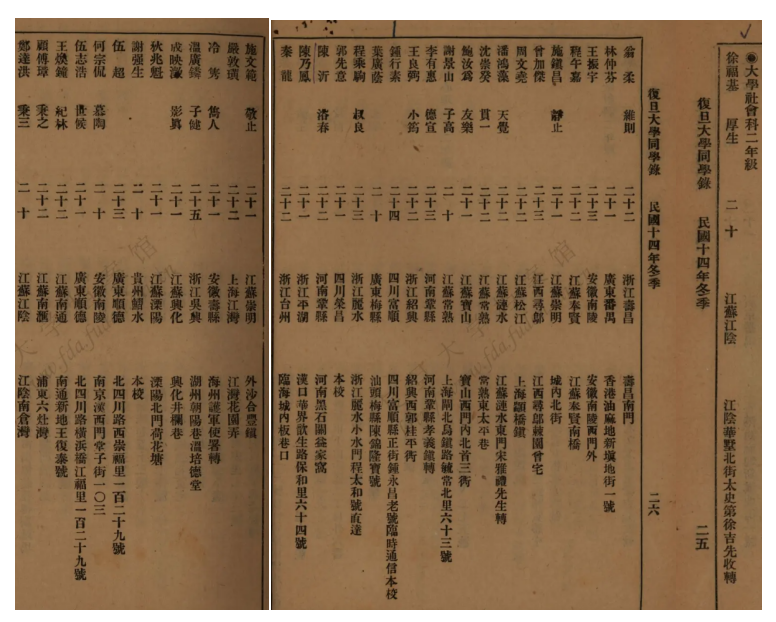 ●大學社會科二年級
徐福基 厚生 二十 江蘇江陰 江陰華墅北街太史第徐吉先收轉
復旦大學同學錄 民國十四年冬季 二五
復旦大學同學錄 民國十四年冬季 二六
翁柔 維則 二十二 浙江壽昌 壽昌南門
林仲芬 二十一 廣東番禺 香港油麻地新塡地街一號
王振宇 二十三 安徽南陵 安徽南陵西門外
程午嘉 二十二 江蘇奉賢 江蘇奉賢南橋
施鎭昌 靜止 二十一 江蘇崇明 城內北街
曾加傑 二十三 江西尋鄔 江西尋鄔菽園曾宅
周文堯 二十二 江蘇松江 上海顓橋鎭
潘鴻藻 天覺 二十二 江蘇漣水 江蘇漣水東門宋雅禮先生轉
沈崇癸 貫一 二十二 江蘇常熟 常熟東太平巷
鮑汝爲 友樂 二十一 江蘇寶山 寶山西門內北首三衖
謝景山 子高 二十 江蘇常熟 上海閘北烏鎭路毓常北里六十三號
李有惠 德宣 二十三 河南鞏縣 河南鞏縣孝義鎭轉
王良弼 小筠 二十二 浙江紹興 紹興西郭桂平衖
鍾行素 二十四 四川富順 四川富順縣正街鍾永昌老號臨時通信本校
葉廣蔭 二十 廣東梅縣 汕頭梅縣陳錦隆寶號
程乘駒 叔良 二十三 浙江麗水 浙江麗水小水門程太和號直達
郭先意 二十一 四川榮昌 本校
陳沂 浴春 二十二 河南鞏縣 河南黑石關家窩
陳乃鳳 二十一 浙江平湖 漢口華界歆生路保和里六十四號
秦龍 二十二 浙江台州 臨海城內板巷口
施文範 敬止 二十一 江蘇崇明 外沙合豐鎭
嚴敦璜 二十二 上海江灣 江灣花園弄
冷雋 雋人 二十一 安徽壽縣 海州護軍使署轉
溫廣鑄 子健 二十五 浙江吳興 湖州朝陽巷溫培德堂
成映濠 影眞 二十一 江蘇興化 興化井欄巷
狄兆魁 二十一 江蘇溧陽 溧陽北門荷花塘
謝强生 二十 貴州鰼水 本校
伍超 二十三 廣東順德 北四川路西崇福里一百二十九號
何宗侃 慕陶 二十 安徽南陵 南京漢西門堂子街一〇三
伍志浩 世候 二十一 廣東順德 北四川路橫浜橋江福里一百二十九號
王煥鐘 紀林 二十二 江蘇南通 南通新地王復泰號
顧傅璋 秉之 二十二 江蘇南匯 浦東六灶灣
鄭達洪 秉三 二十 江蘇江陰 江陰南倉灣